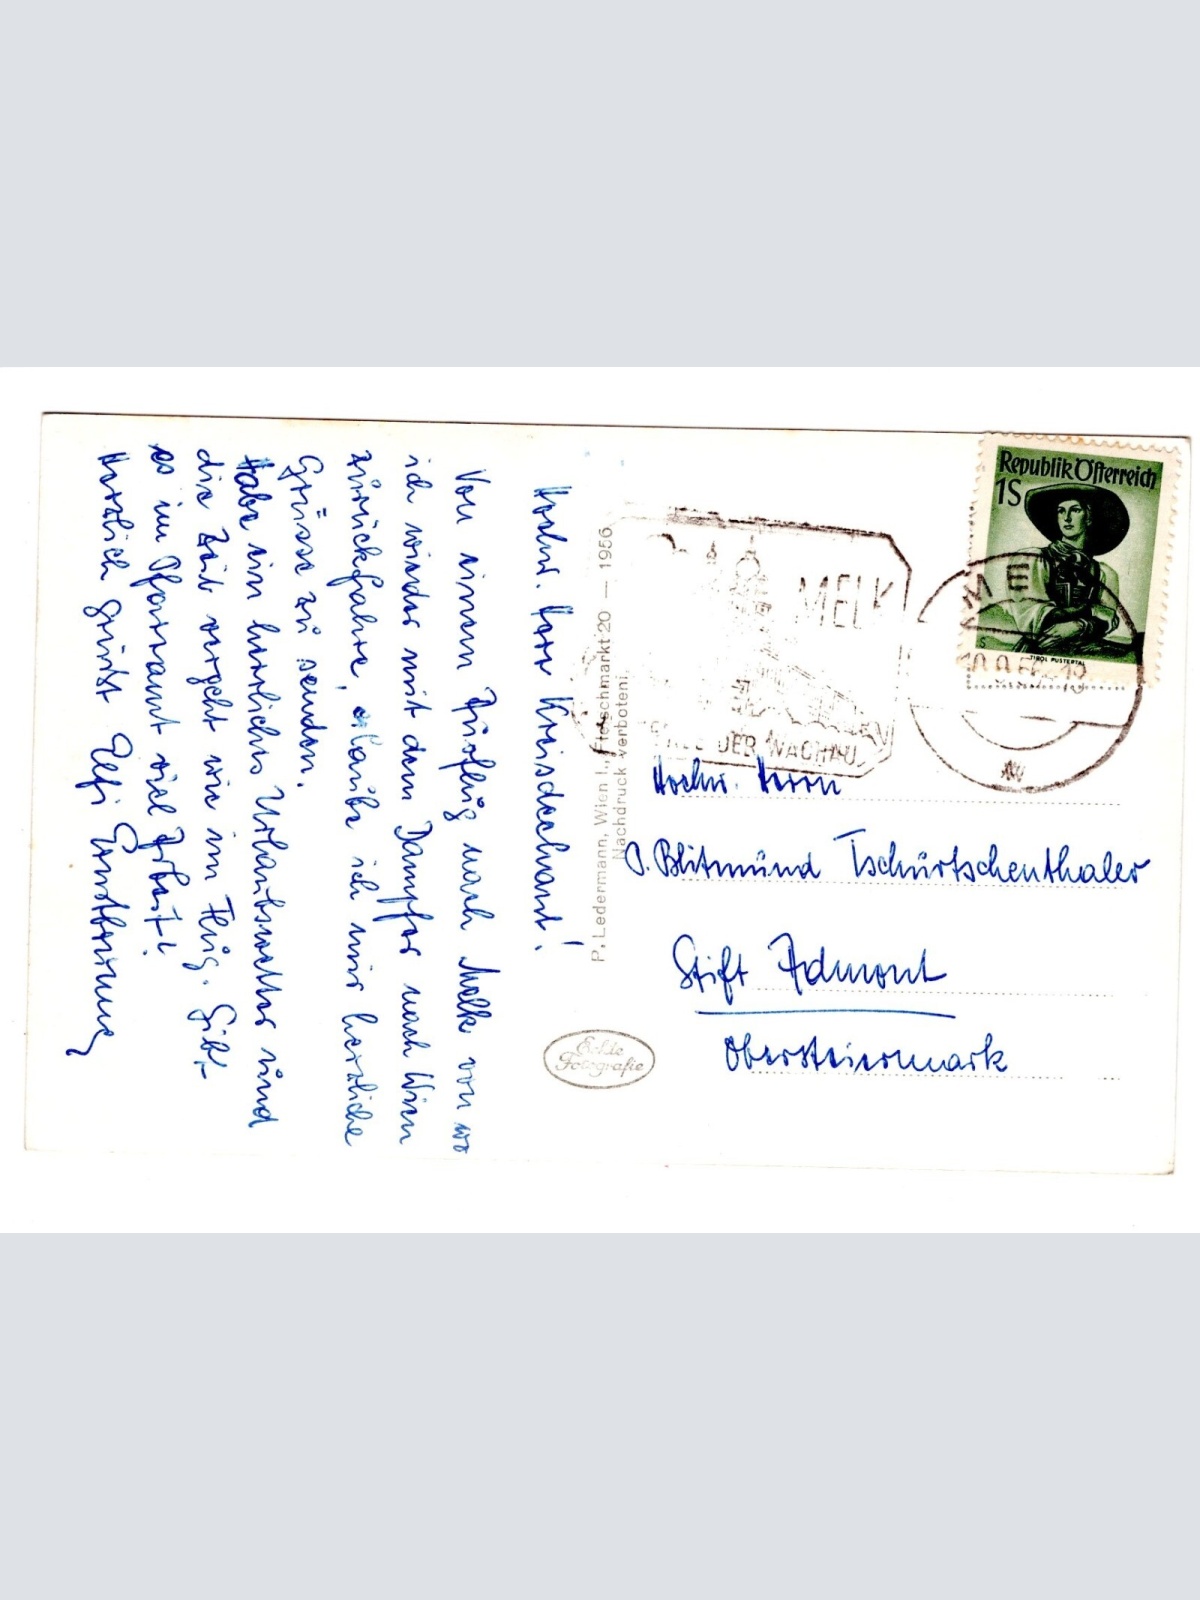 Hochw. Herr Kreisdechant!
Von einem Ausflug nach Melk von wo
ich wieder mit dem Dampfer nach Wien
zurückfahre, erlaube ich mir herzliche
Grüsse zu senden.
Habe ein herrliches Urlaubswetter und
die Zeit vergeht wie im Flug. Gibt
es im Pfarramt viel Arbeit?
Herzlich grüsst Elfi
P. Ledermann, Wien I., Fleischmarkt 20 — 1956
Nachdruck verboten.
Echte
Fotografie
Republik Österreich
1S
TIROL PUSTERTAL
MELK
DER WACHAU
Hochw. Herrn
P. Blitmúnd Tschurtschenthaler
Stift Admont
Obersteiermark